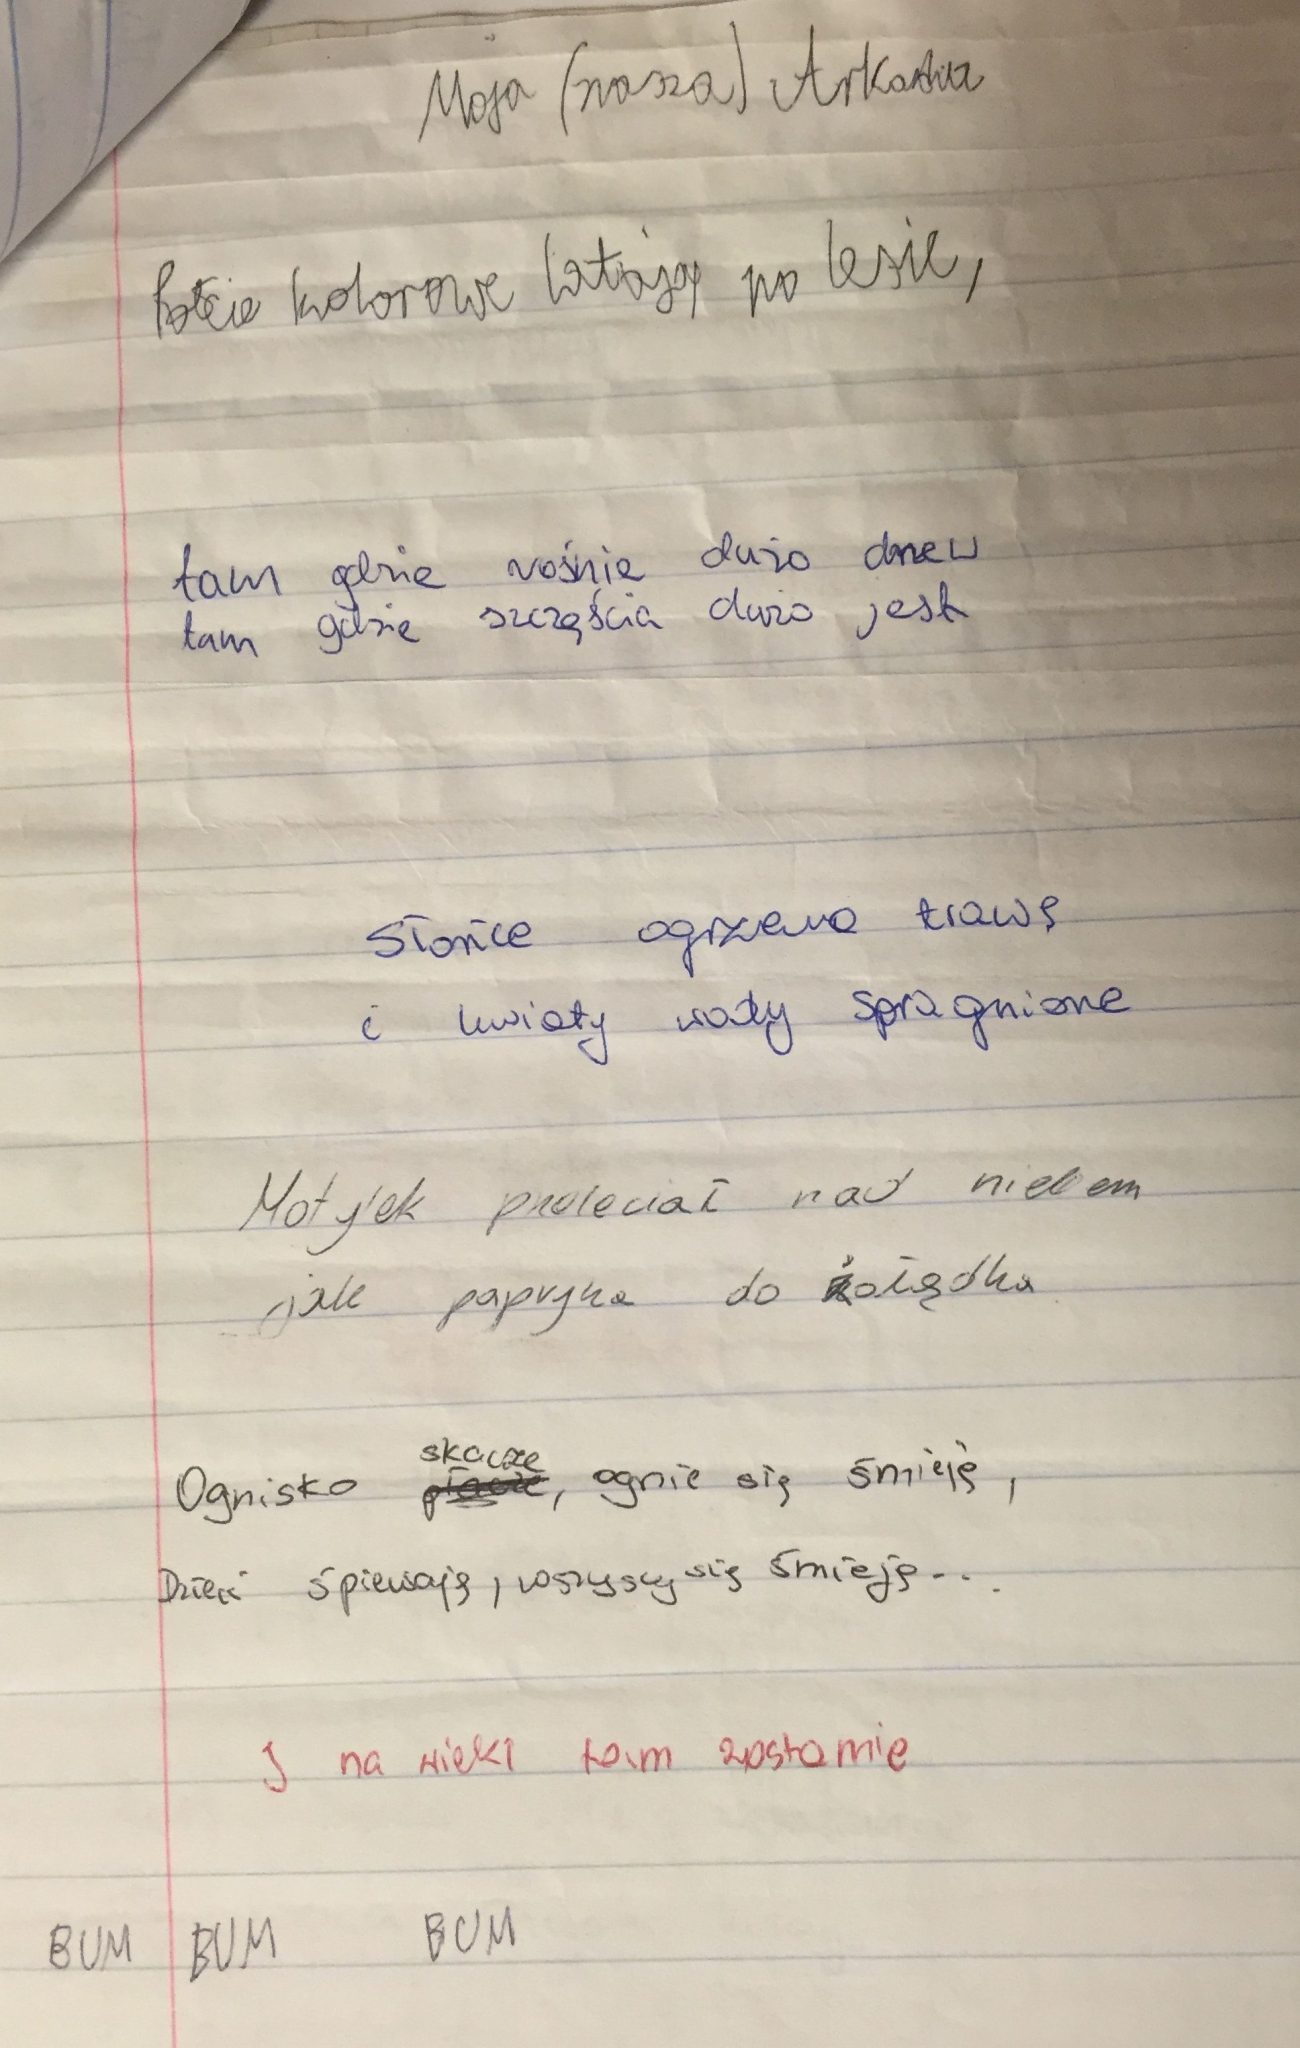 Moja (nasza) Arkadia
kolorowe latają po lesie,
tam gdzie rośnie dużo drzew
tam gdzie szczęścia dużo jest
Słońce ogrzewa trawę
i kwiaty wody spragnione
Motylek przeleciał nad niebem
jak papryka do żołądka
Ognisko skacze, ognie się śmieją,
Dzieci śpiewają, wszyscy się śmieją...
I na wieki tam zostanie
BUM BUM BUM